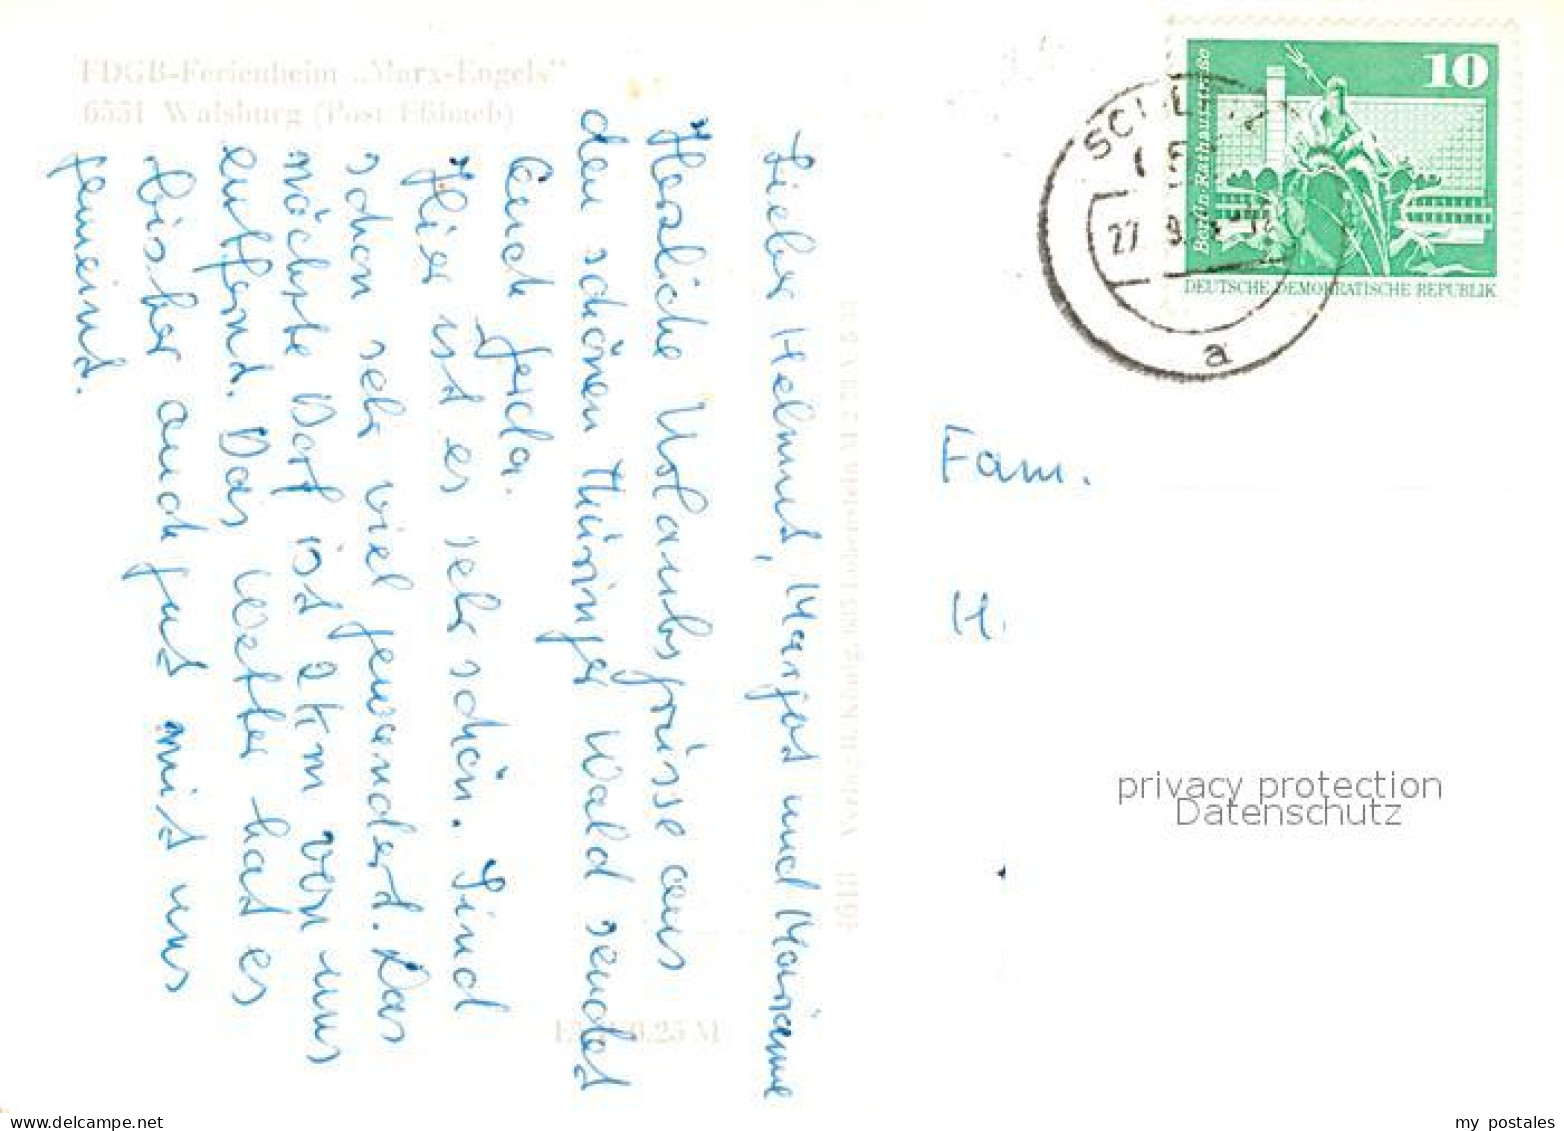 FDGB-Ferienheim „Marx-Engels"
6551 Walsburg (Post Eßbach)
Lieber Helmut, Margot und Marianne
Herzliche Urlaubsgrüsse aus
den schönen Thüringer Wald sendet
Euch Gerda.
Hier ist es sehr schön. Sind
schon sehr viel gewandert. Das
nächste Dorf ist 2 km von uns
entfernt. Das Wetter hat es
bisher auch gut mit uns
gemeint.
Verlag R. König, 685 Lobenstein
0,25 M
10
Berlin, Rathausstraße
DEUTSCHE DEMOKRATISCHE REPUBLIK
SCHLEIZ
27
a
Fam.
H.
privacy protection
Datenschutz
my postales